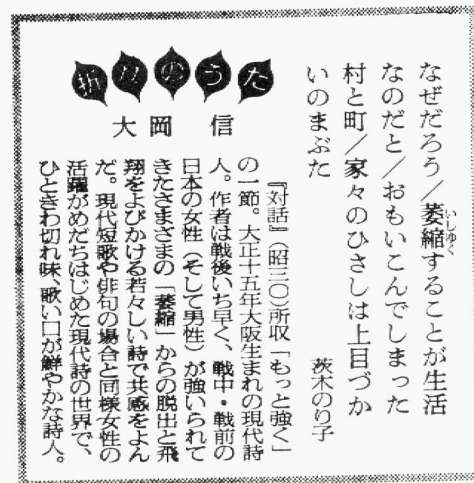 なぜだろう／萎縮することが生活
いしゅく
なのだと／おもいこんでしまった
村と町／家々のひさしは上目づか
いのまぶた
茨木のり子
折々のうた
大岡 信
『対話』（昭三〇）所収「もっと強く」
の一節。大正十五年大阪生まれの現代詩
人。作者は戦後いち早く、戦中・戦前の
日本の女性（そして男性）が強いられて
きたさまざまの「萎縮」からの脱出と飛
翔をよびかける若々しい詩で共感をよん
だ。現代短歌や俳句の場合と同様女性の
活躍がめだちはじめた現代詩の世界で、
ひときわ切れ味、歌い口が鮮やかな詩人。